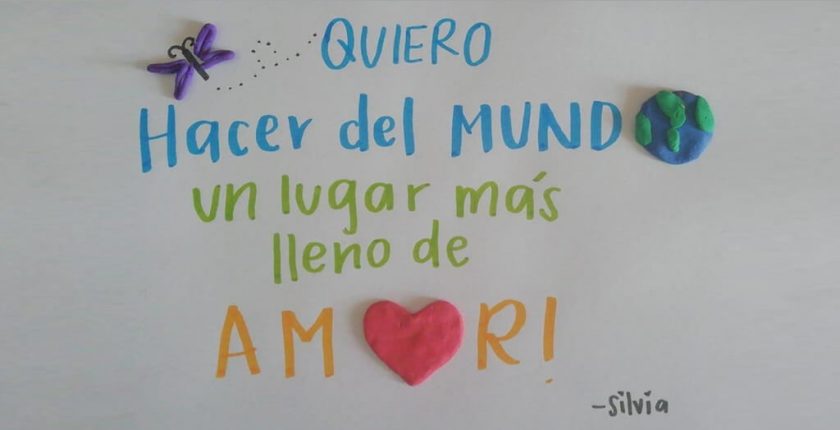 QUIERO
Hacer del MUNDO
un lugar más
lleno de
AMOR!
-Silvia